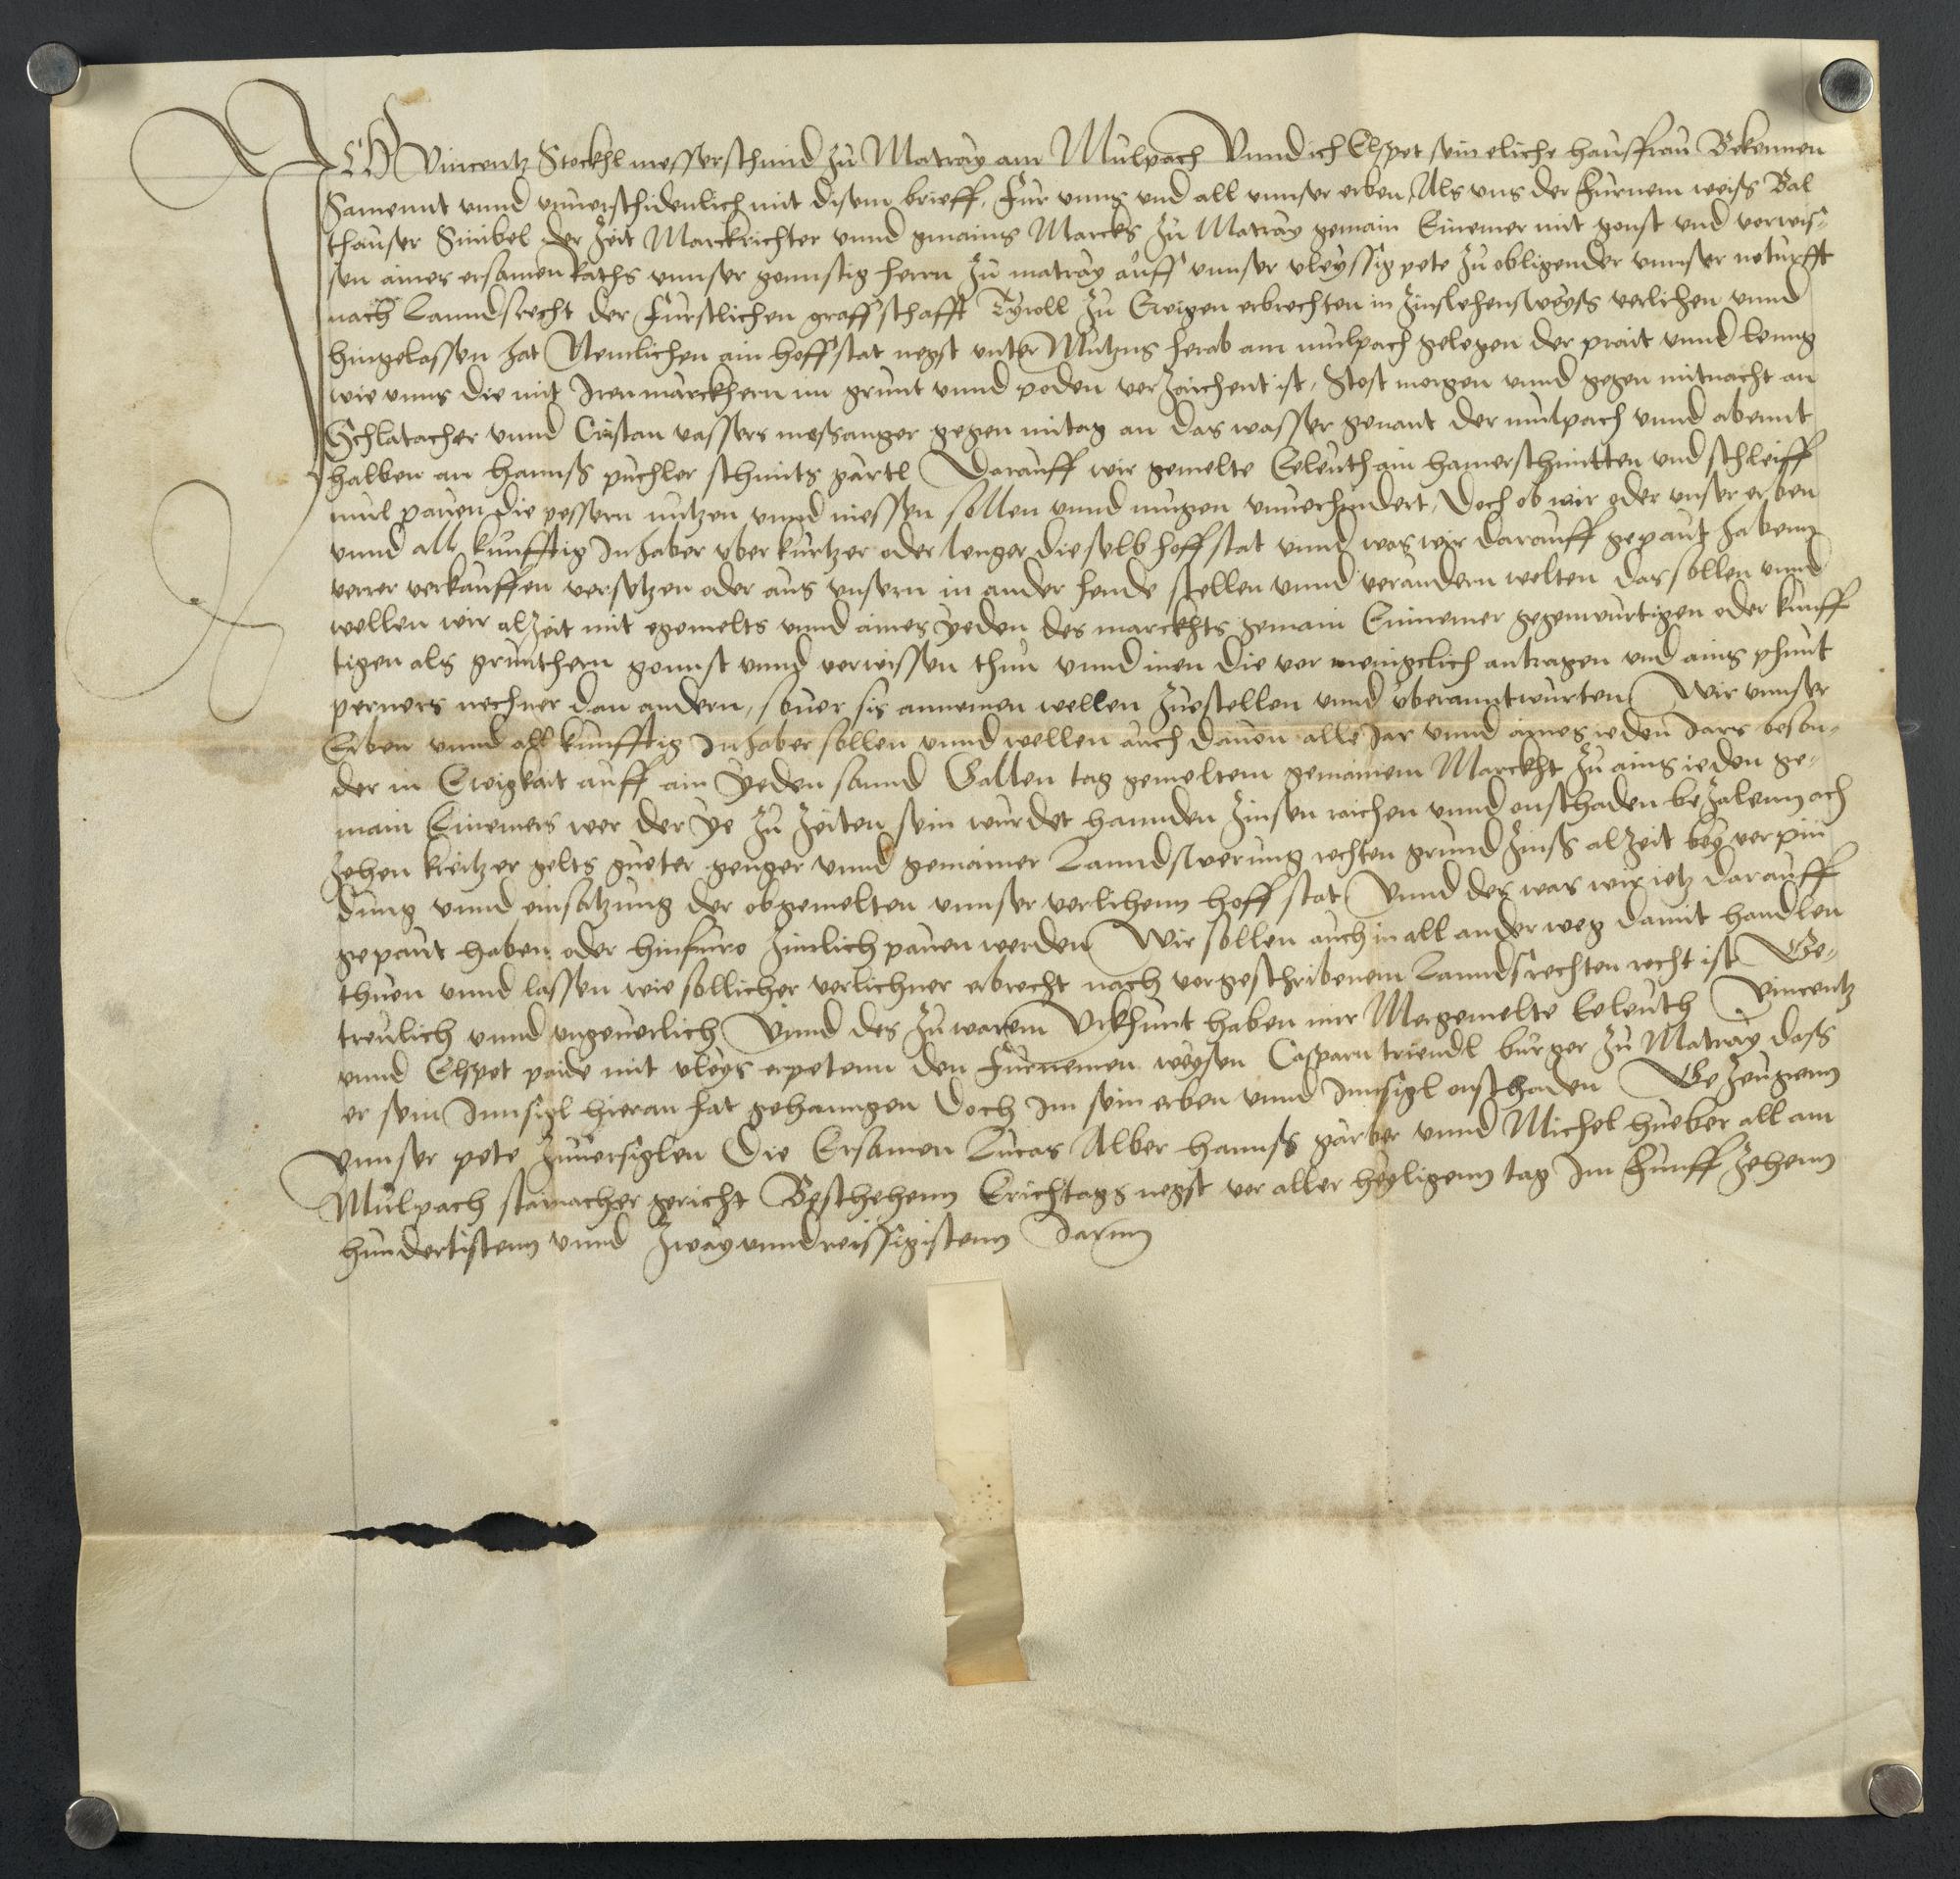 ICH Vincentz Stockhl messerschmid zu Matray am Mulpach Vnnd ich Elspet sein eliche hausfrau Bekennen
Samennt vnnd vnuerschidenlich mit disem brieff, Fur vnns vnd all vnnser erben, Als vns der Furnem weiss Bal
thauser Simbel der zeit Marckrichter vnnd gmains Marcks zu Matray gemain Einemer mit gonst vnd verwis-
sen aines ersamen Raths vnnser gonnstig herrn zu matray auff vnnser vleyssig pete zu obligender vnnser noturfft
nach Lanndsrecht der Furstlichen graffschafft Tyroll zu Ewigen erbrechten in zinslehensweyss verlihen vnnd
hingelassen hat Nemlichen ain hoffstat negst vnter Mutzns herab am mulpach gelegen der prait vnnd lenng
wie vnns die mit Iren marckhern im grunt vnnd poden verzaichent ist, Stost morgen vnnd gegen mitnacht an
Schlatacher vnnd Cristan vassers mossanger gegen mitag an das wasser genant der mulpach vnnd abennt
halben an hannss puchler schmits gartl Darauff wir gemelte Eeleuth ain hamerschmitten vnd schleiff
mul pauen die pessern nutzen vnnd niessen sollen vnnd mugen vnuerhindert, Doch ob wir oder vnser erben
vnnd all kunfftig Inhaber vber kurtzer oder lenger dieselb hoffstat vnnd was wir darauff gepaut habenn
verer verkauffen versetzen oder aus vnsern in ander hende stellen vnnd verandern wolten das sollen vnnd
wellen wir alzeit mit egemelts vnnd aines yeden des marckhts gemain Einnemer gegenwurtigen oder kunff
tigen als grunthern gonnst vnnd verwissen thun vnnd inen die vor menigclich antragen vnd ains phunt
perners nechner dan andern, souer sis annemen wellen zuestellen vnnd vberanntwurten Wir vnnser
Erben vnnd all kunfftig Inhaber sollen vnnd wellen auch dauon alle Jar vnnd aines ieden Jars beson-
der in Ewigkait auff ain yeden sannd Gallen tag gemeltem gemainem Marckht zu ains ieden ge-
main Einemers wer der ye zu zeiten sein wurdet hannden zinsen raichen vnnd onschaden bezalenn ach
zehen kreitzer gelts gueter genger vnnd gemainer Lanndswerung rechten grundzinss alzeit bey verpin
dung vnnd einsatzung der obgemelten vnnser verlihenn hoffstat Vnnd des was wir ietz darauff
gepaut haben oder hinfuro zimlich pauen werden Wir sollen auch in all ander weg damit handlen
thuen vnnd lassen wie sollicher verlichner erbrecht nach vorgeschribenem Lanndsrechten recht ist Ge-
treulich vnnd vngeuerlich Vnnd des zu warem Vrkhunt haben mir Mergemelte Eeleuth Vincentz
vnnd Elspet paide mit vleys erpetenn den Furnemen weysen Casparn triendl burger zu Matray dass
er sein Innsigl hieran hat gehanngen Doch im sein erben vnnd Innsigl onschaden Gezeugenn
vnnser pete zuuersiglen Die Ersamen Lucas Alber hannss garber vnnd Michel hueber all am
Mulpach stainacher gericht Beschehenn Erichtags negst vor aller heyligenn tag Im Funffzehenn
hundertistenn vnnd zwayvnndreissigistenn Jarnn